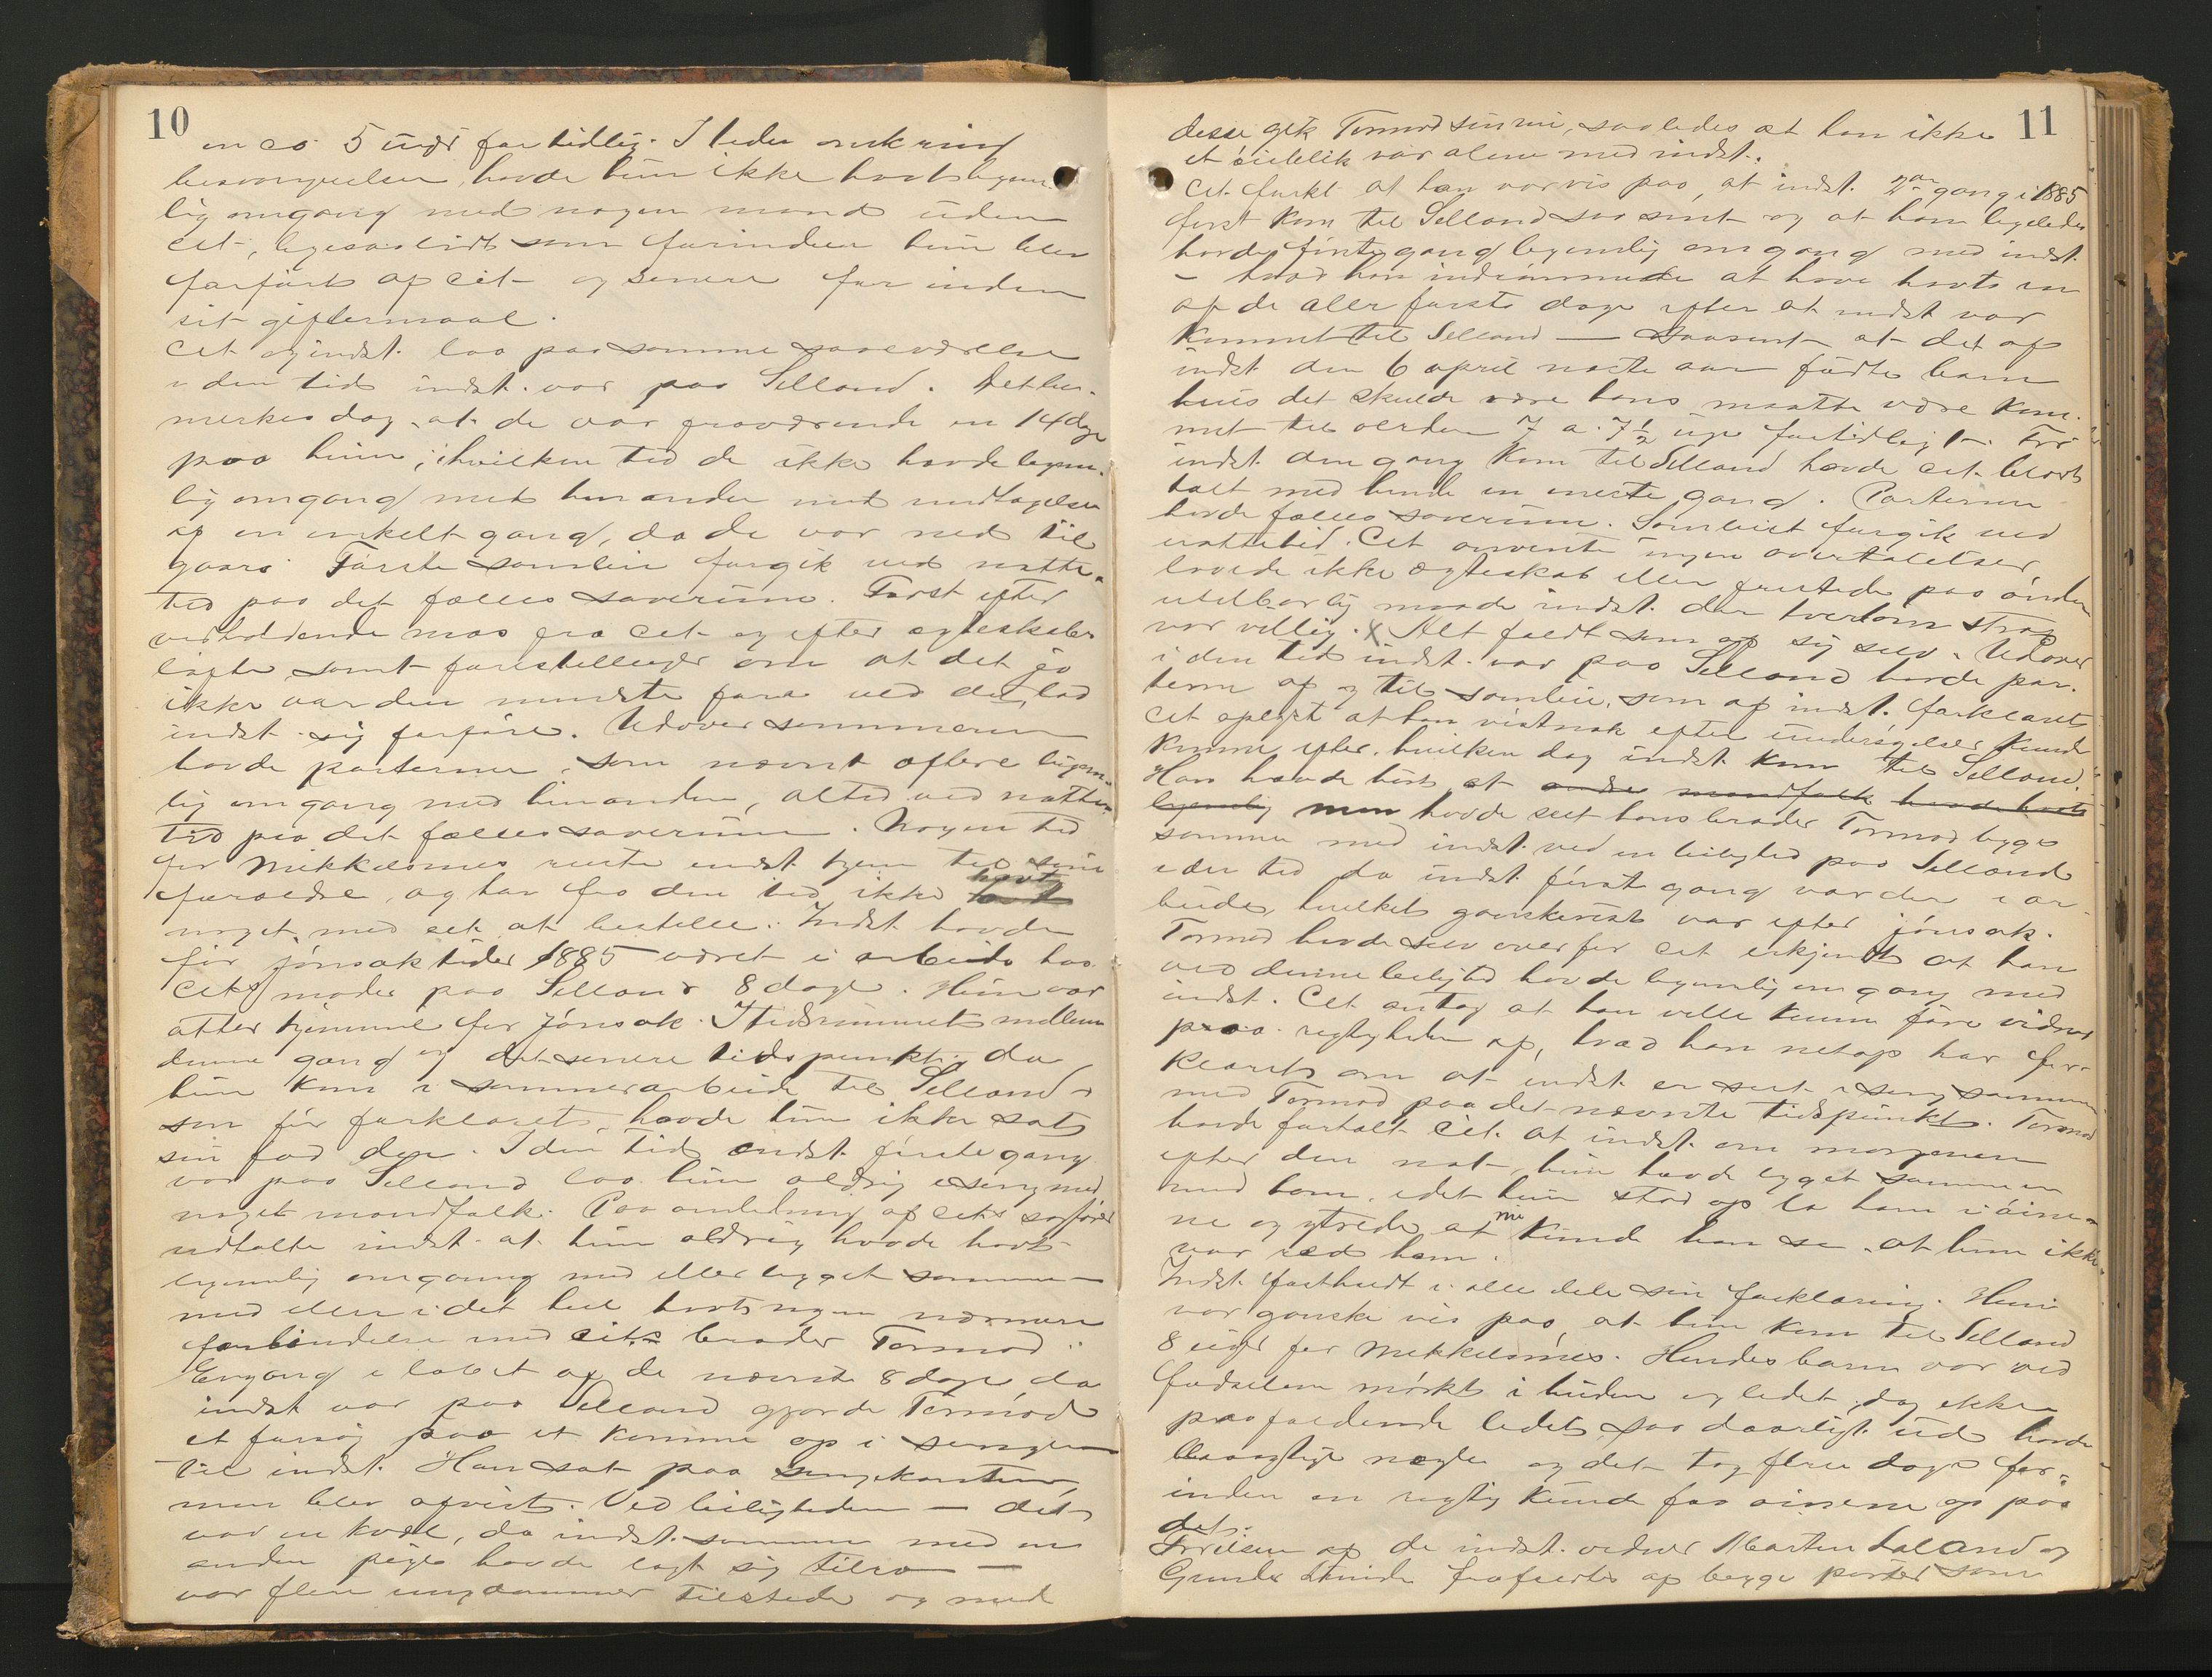 10
en ca 5 uger for tidlig. I tiden omkring
besvangrelsen havde hun ikke havt legem-
lig omgang med nogen mand uden
cit, ligesaalidt som forinden hun blev
forført af cit og senere før inden
sit giftermaal.
Cit og indst. laa paa samme soveværelse
i den tid indst. var paa Selland. Det be-
merkes dog at de var fraværende en 14 dage
paa heien, i hvilken tid de ikke havde legem-
lig omgang med hinanden med undtagelse
af en enkelt gang, da de var ned til
gaars. Første samleie forgik ved natte-
tid paa det fælles soverum. Først efter
vedholdende mas fra cit og efter egteskabs-
løfte samt forestillinger om at det jo
ikke var den mindste fare ved det, lod
indst. sig forføre. Udover sommeren
havde parterne, som nævnt oftere legem-
lig omgang med hinanden, altid ved natte-
tid paa det fælles soverum. Nogen tid
før Mikkelsmes reiste indst hjem til sine
foreldre, og har fra den tid ikke havt
noget med cit at bestille. Indst havde
før jonsoktider 1885 været i arbeide hos
Cits moder paa Selland 8 dage. Hun var
atter hjemme før Jonsok. I tidsrummet mellem
denne gang og det senere tidspunkt, da
hun kom i sommerarbeide til Selland
som før forklaret, havde hun ikke sat
sin fod der. I den tid indst. første gang
var paa Selland laa hun aldrig i seng med
noget mandfolk. Paa anledning af cits sagfører
udtalte indst. at hun aldrig havde havt
legemlig omgang med eller ligget sammen
med eller i det hele havt nogen nærmere
forbindelse med cits broder Tormod.
Engang i løbet af de nævnte 8 dage, da
indst var paa Selland gjorde Tormod
et forsøg paa at komme op i sengen
til indst. Han sat paa sengekanten,
men blev afvist. Ved leiligheden — det
var en kvæl, da indst. sammen med en
anden pige havde lagt sig tilro —
var flere ungdommer tilstede og med
11
disse gik Tormod sin vei, saaledes at han ikke
et øieblik var alene med indst.
Cit. forkl. at han var vis paa, at indst. 2den gang i 1885
først kom til Selland saa sent og at han ligeledes
havde første gang legemlig omgang med indst.
— hvad han indrømmede at have havt en
af de aller første dage efter at indst var
kommet til Selland — saasent at det af
indst den 6 april næste aar fødte barn
hvis det skulde være hans maatte være kom-
met til verden 7 a 7½ uge fortidligt. Før
indst. den gang kom til Selland havde cit. blot
talt med hende en eneste gang. Parterne
havde fælles soverum. Samleiet forgik ved
nattetid. Cit anvendte ingen overtalelser,
lovede ikke ægteskab eller fristede paa anden
utilbørlig maade indst. der tvertom strax
var villig. x Alt faldt som af sig selv. Udover
i den tid indst. var paa Selland havde par-
terne af og til samleie, som af indst. forklaret.
Cit oplyst at han vistnok efter undersøgelser kunde
komme efter, hvilken dag indst kom til Selland.
Han havde hørt at andre mandfolk havde havt
legemlig men havde seet hans broder Tormod ligge
sammen med indst. ved en leilighed paa Selland
i den tid da indst først gang var der i ar-
beide, hvilket ganskevist var efter jonsok.
Tormod havde selv overfor cit erkjendt at han
ved denne leilighed havde legemlig omgang med
indst. Cit antog at han ville kunne føre vidner
paa rigtigheden af, hvad han netop har for-
klaret om at indst er seet i seng sammen
med Tormod paa det nævnte tidspunkt. Tormod
havde fortalt Cit. at indst. om morgenen
efter den nat, hun havde ligget sammen
med ham, idet hun stod op lo ham i øine-
ne og ytrede at nu kunde han se at hun ikke
var ræd ham.
Indst. fastholdt i alle dele sin forklaring. Hun
var ganske vis paa, at hun kom til Selland
8 uger før Mikkelsmes. Hendes barn var ved
fødselen mørkt i huden og ledet, dog ikke
paafaldende ledet, saa daarligt ud, havde
negle og det tog flere dage før-
inden en rigtig kunde faa øinene op paa
det.
af de indst. vidner Marten Haland og
Gunder frafaldtes af begge parter som